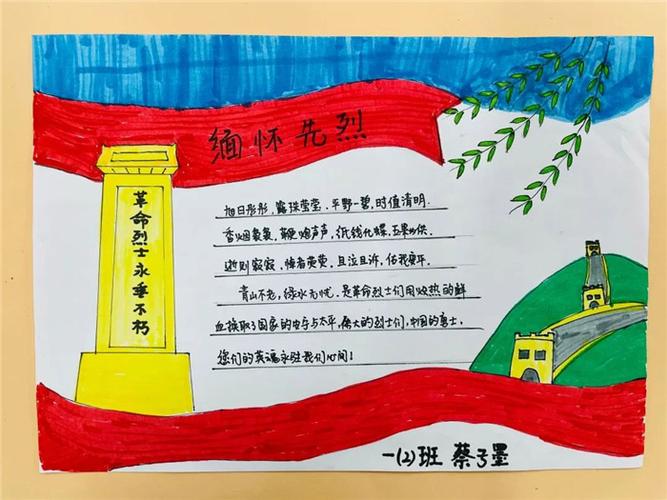 缅怀先烈
革命烈士永垂不朽
旭日彤彤、露珠莹莹、平野一碧，时值清明.
香烟袅袅，鞭炮声声，纸钱化蝶，
逝则寂寂，悼者 且泣且诉，佑我康平.
青山不老，绿水无忧，是革命烈士们用炽热的鲜
血换取了国家的安宁与太平，伟大的烈士们，中国的勇士，
您们的英魂永驻我们心间！
一(2)班 蔡子墨